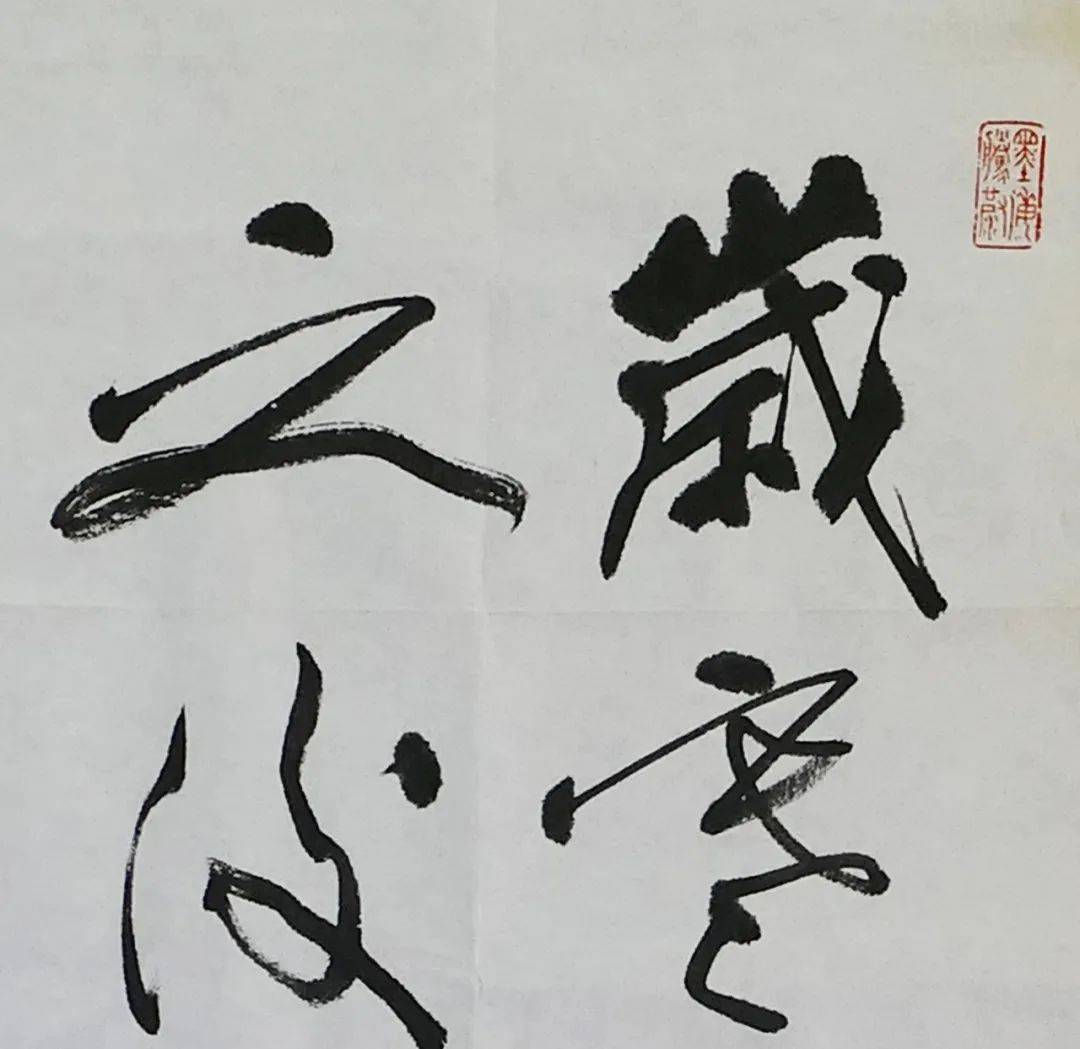 歲寒
之後